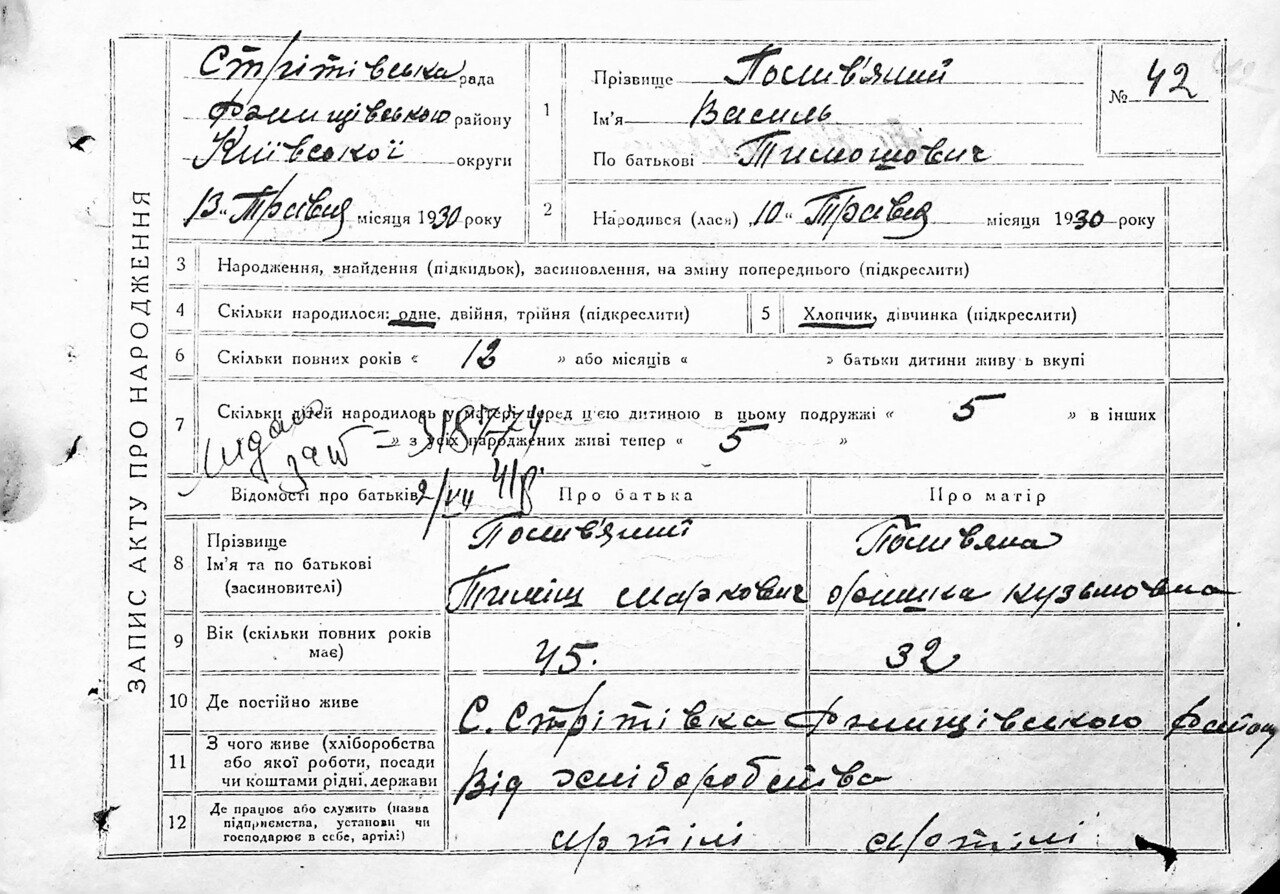 ЗАПИС АКТУ ПРО НАРОДЖЕННЯ
Стрітівська рада
району
Київської округи
13 " Травня місяця 1930 року
1
Прізвище Полив'яний
Ім'я Василь
По батькові Тимошович
№ 42
2
Народився (лася) „ 10 " Травня місяця 1930 року
3 Народження, знайдення (підкидьок), засиновлення, на зміну попереднього (підкреслити)
4 Скільки народилося: одне, двійня, трійня (підкреслити)
5 Хлопчик, дівчинка (підкреслити)
6 Скільки повних років « 12 » або місяців « » батьки дитини живу ь вкупі
7 Скільки дітей народилось у матері перед цією дитиною в цьому подружжі « 5 » в інших
» з усіх народжених живі тепер « 5 »
2/VII 41р.
Відомості про батьків Про батька Про матір
8 Прізвище
Ім'я та по батькові
(засиновителі)
Полив'яний
Тиміш Маркович
Полив'яна
Оришка Кузьмовна
9 Вік (скільки повних років
має)
45.
32
10 Де постійно живе
С. Стрітівка району
11 З чого живе (хліборобства
або якої роботи, посади
чи коштами рідні, держави
Від хліборобства
12 Де працює або служить (назва
підприємства, установи чи
господарює в себе, артілі)
артілі артілі